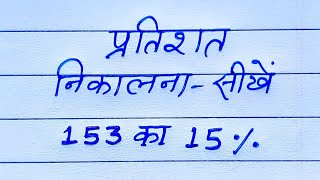 प्रतिशत
निकालना - सीखें
153 का 15 %